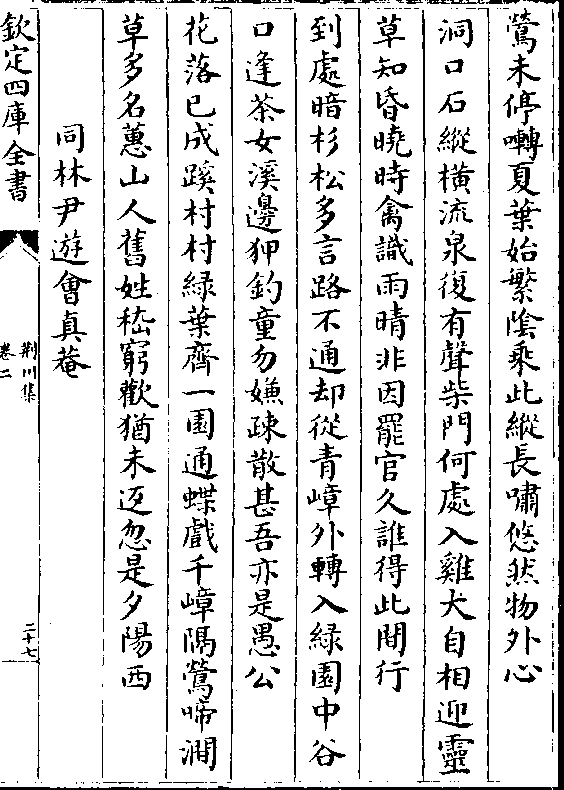 鶯未停囀夏葉始繁陰乘此縱長嘯悠然物外心
洞口石縱橫流泉復有聲柴門何處入雞犬自相迎靈
草知昏曉時禽識雨晴非因罷官久誰得此閒行
到處暗杉松多言路不通却從青嶂外轉入緑園中谷
口逢茶女溪邊狎釣童勿嫌疎散甚吾亦是愚公
花落已成蹊村村緑葉齊一園通蝶戲千嶂隔鶯啼澗
草多名蕙山人舊姓嵇窮歡猶未返忽是夕陽西
同林尹遊會真菴
欽定四庫全書
荆川集
卷二
二十七